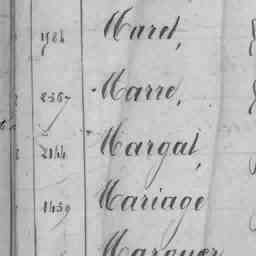 Maret,
2367 Marre,
2144 Margat,
1459 Mariage
Marquer